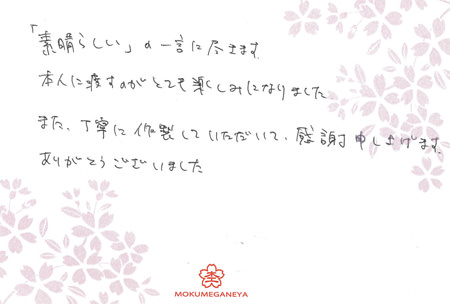 「素晴らしい」の一言に尽きます。
本人に渡すのがとても楽しみになりました
また、丁寧に作製していただいて、感謝申し上げます。
ありがとうございました
MOKUMEGANEYA